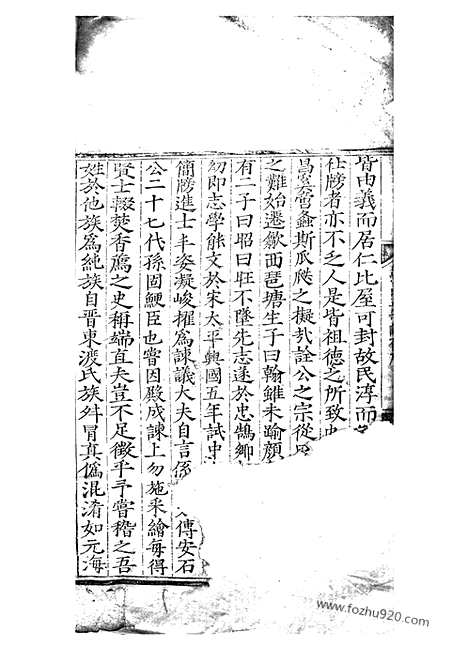 皆由義而居仁比屋可封故民淳而
仕牓者亦不乏人是皆祖德之所致
昌奚啻螽斯瓜瓞之擬㢤詮公之宗從
之難始遷歙西琵塘生子曰翰雖未踰顏
有二子曰昭曰旺不墜先志遂於忠鵠鄉
初即志學能文於宋太平興國五年試中
簡牓進士丰姿凝峻擢爲諫議大夫自言係
傳安石
公二十七代孫固鯁臣也嘗因殿成諫上勿施釆繪每得
賢士輟焚香薦之史稱端直夫豈不足徵乎予嘗稽之吾
姓於他族爲純族自晋東渡氏族舛冐真僞混淆如元海
www.fozhu920.com